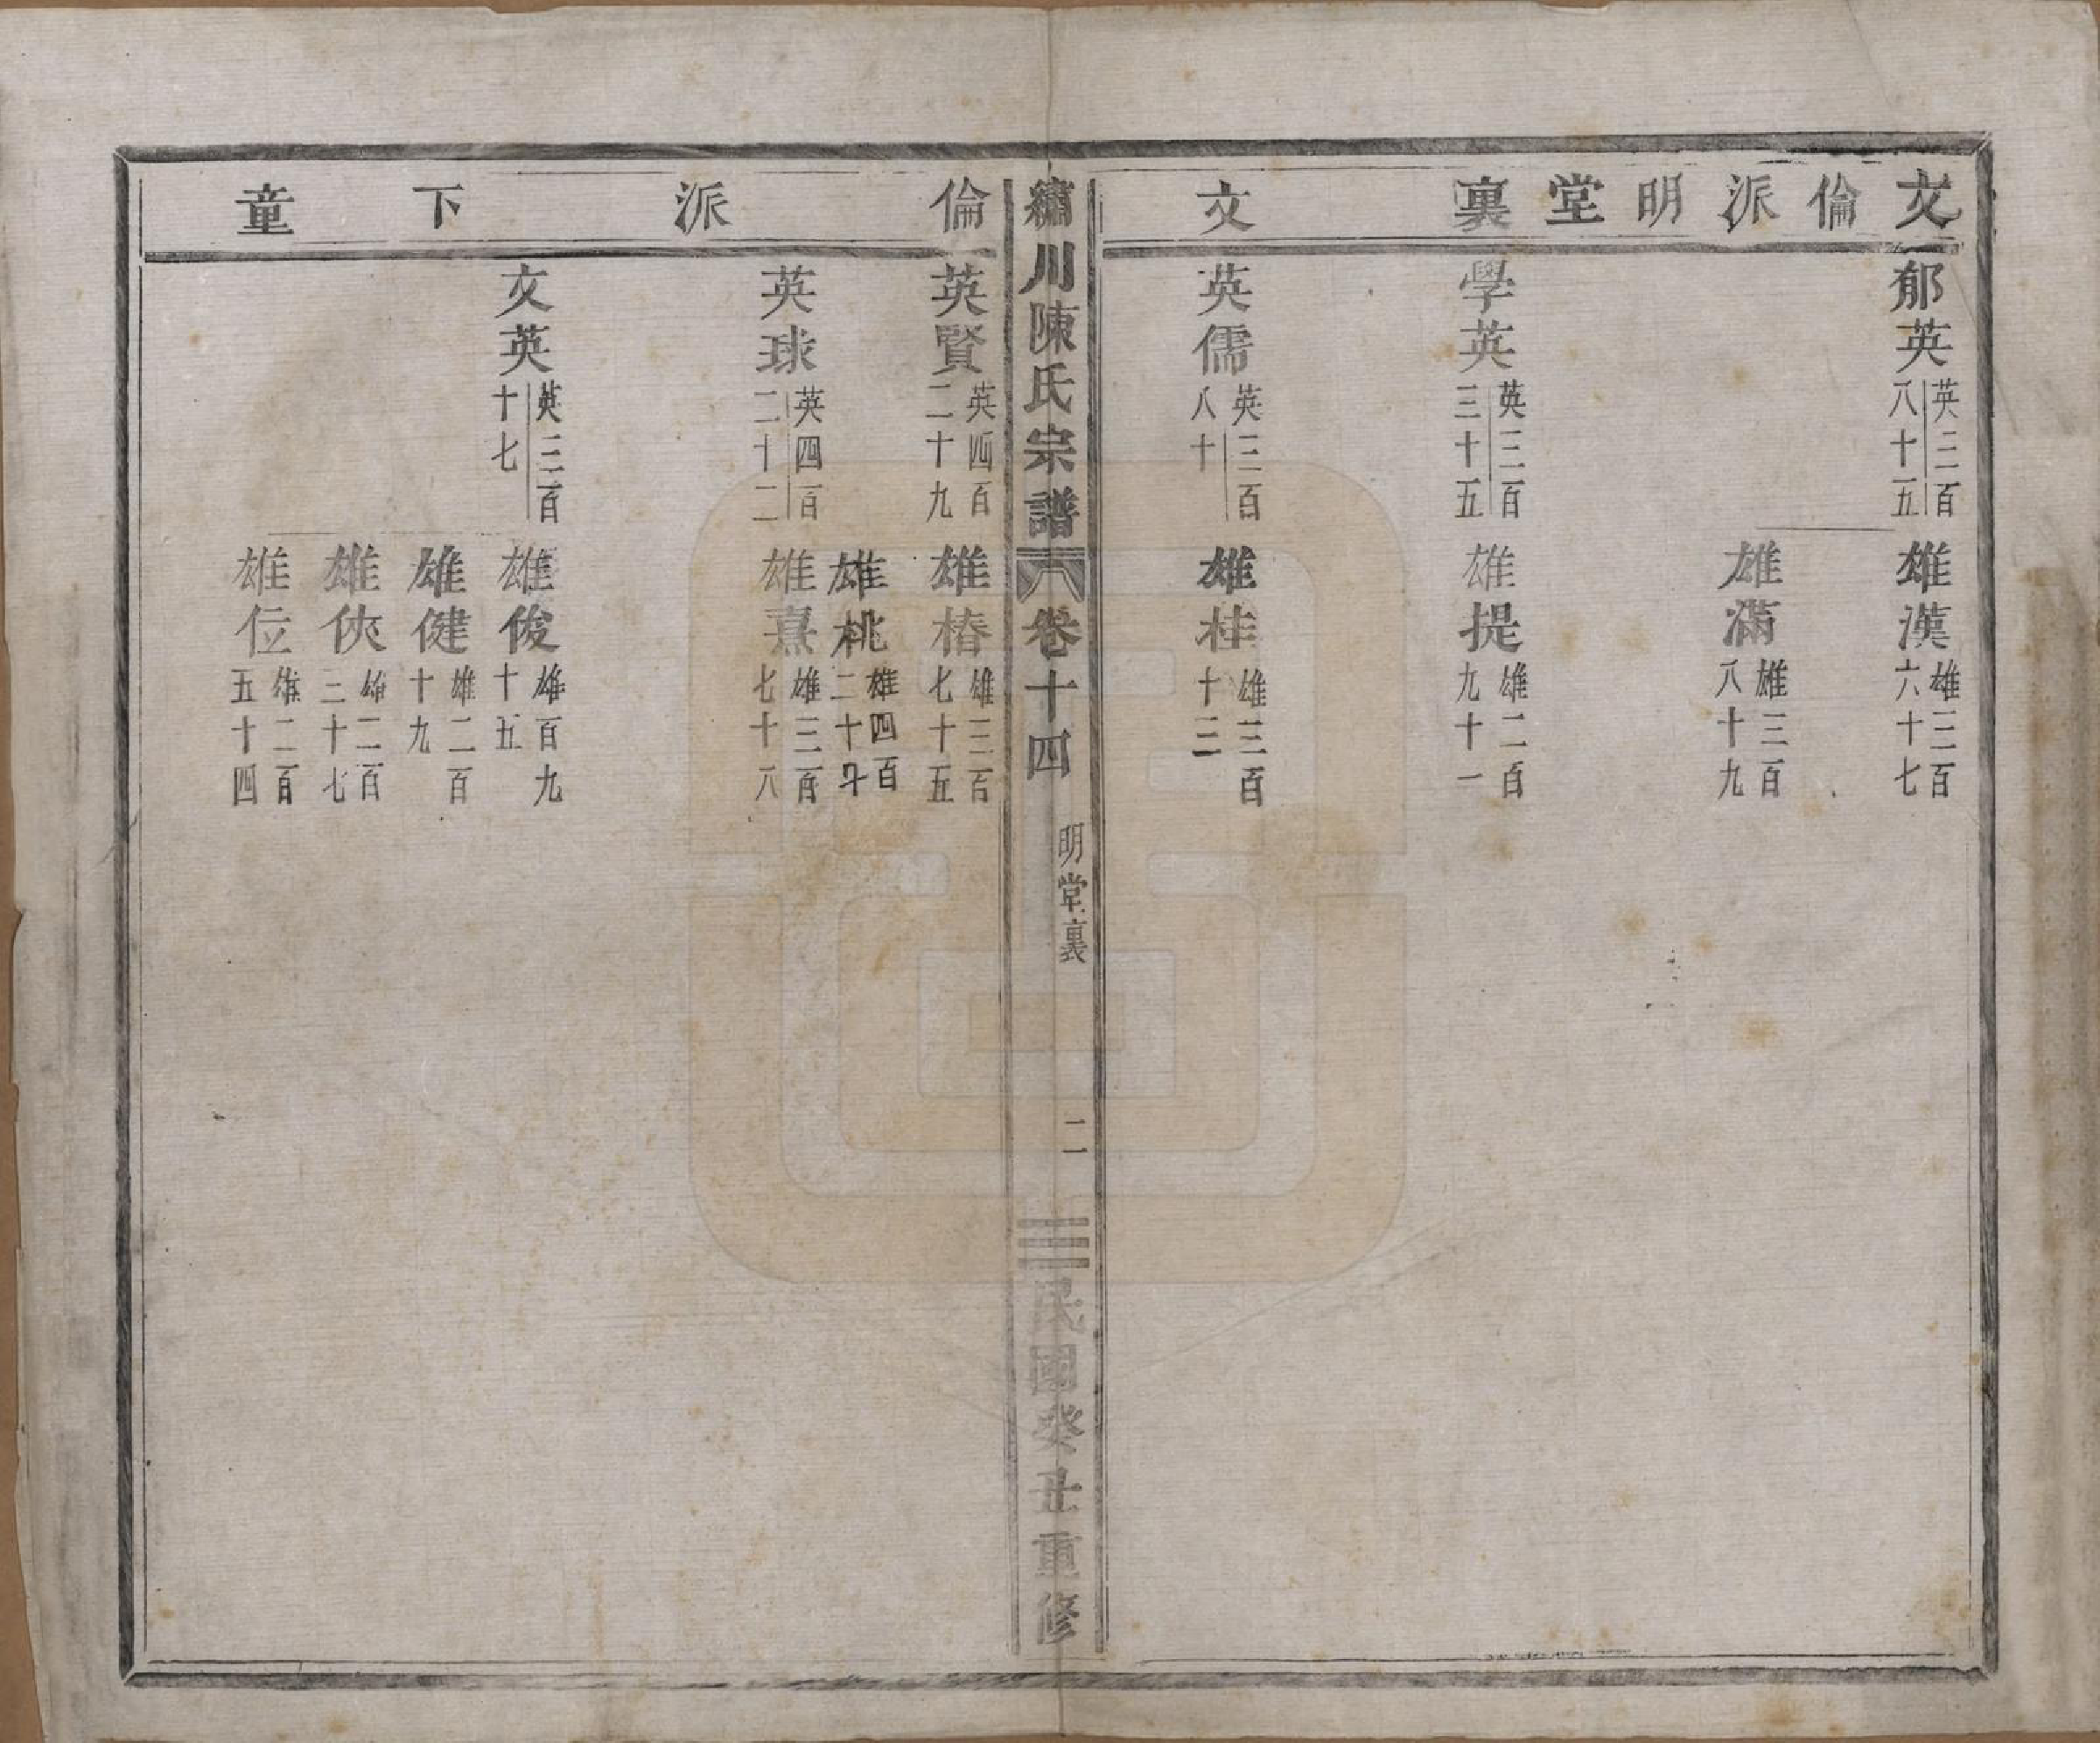 文倫派明堂裏
郁英
英三百八十五
雄漢
雄三百六十七
雄滿
雄三百八十九
學英
英三百三十五
雄提
雄二百九十一
文
英儒
英三百八十
雄桂
雄三百十三
繡川陳氏宗譜
卷十四
明堂裏
二
民國癸丑重修
倫派下童
英賢
英四百二十九
雄椿
雄三百七十五
雄桃
雄四百二十
英球
英四百二十二
雄熹
雄三百七十八
文英
英三百十七
雄俊
雄百九十五
雄健
雄二百十九
雄俠
雄二百三十七
雄位
雄二百五十四